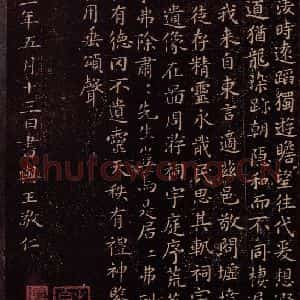 時遠蹈獨遊瞻望往代爰想
道猶龍染跡朝隱和而不同棲
我來自東言適茲邑敬問墟墳
徒存精靈永戢民思其軌祠宇
遺像在啚周游祠宇庭序荒
弗除肅〻先生豈焉是居〻弗
有德罔不遺靈天秩有禮神鑒
用垂頌聲
年五月十三日書與王敬仁
Shufawang.CN